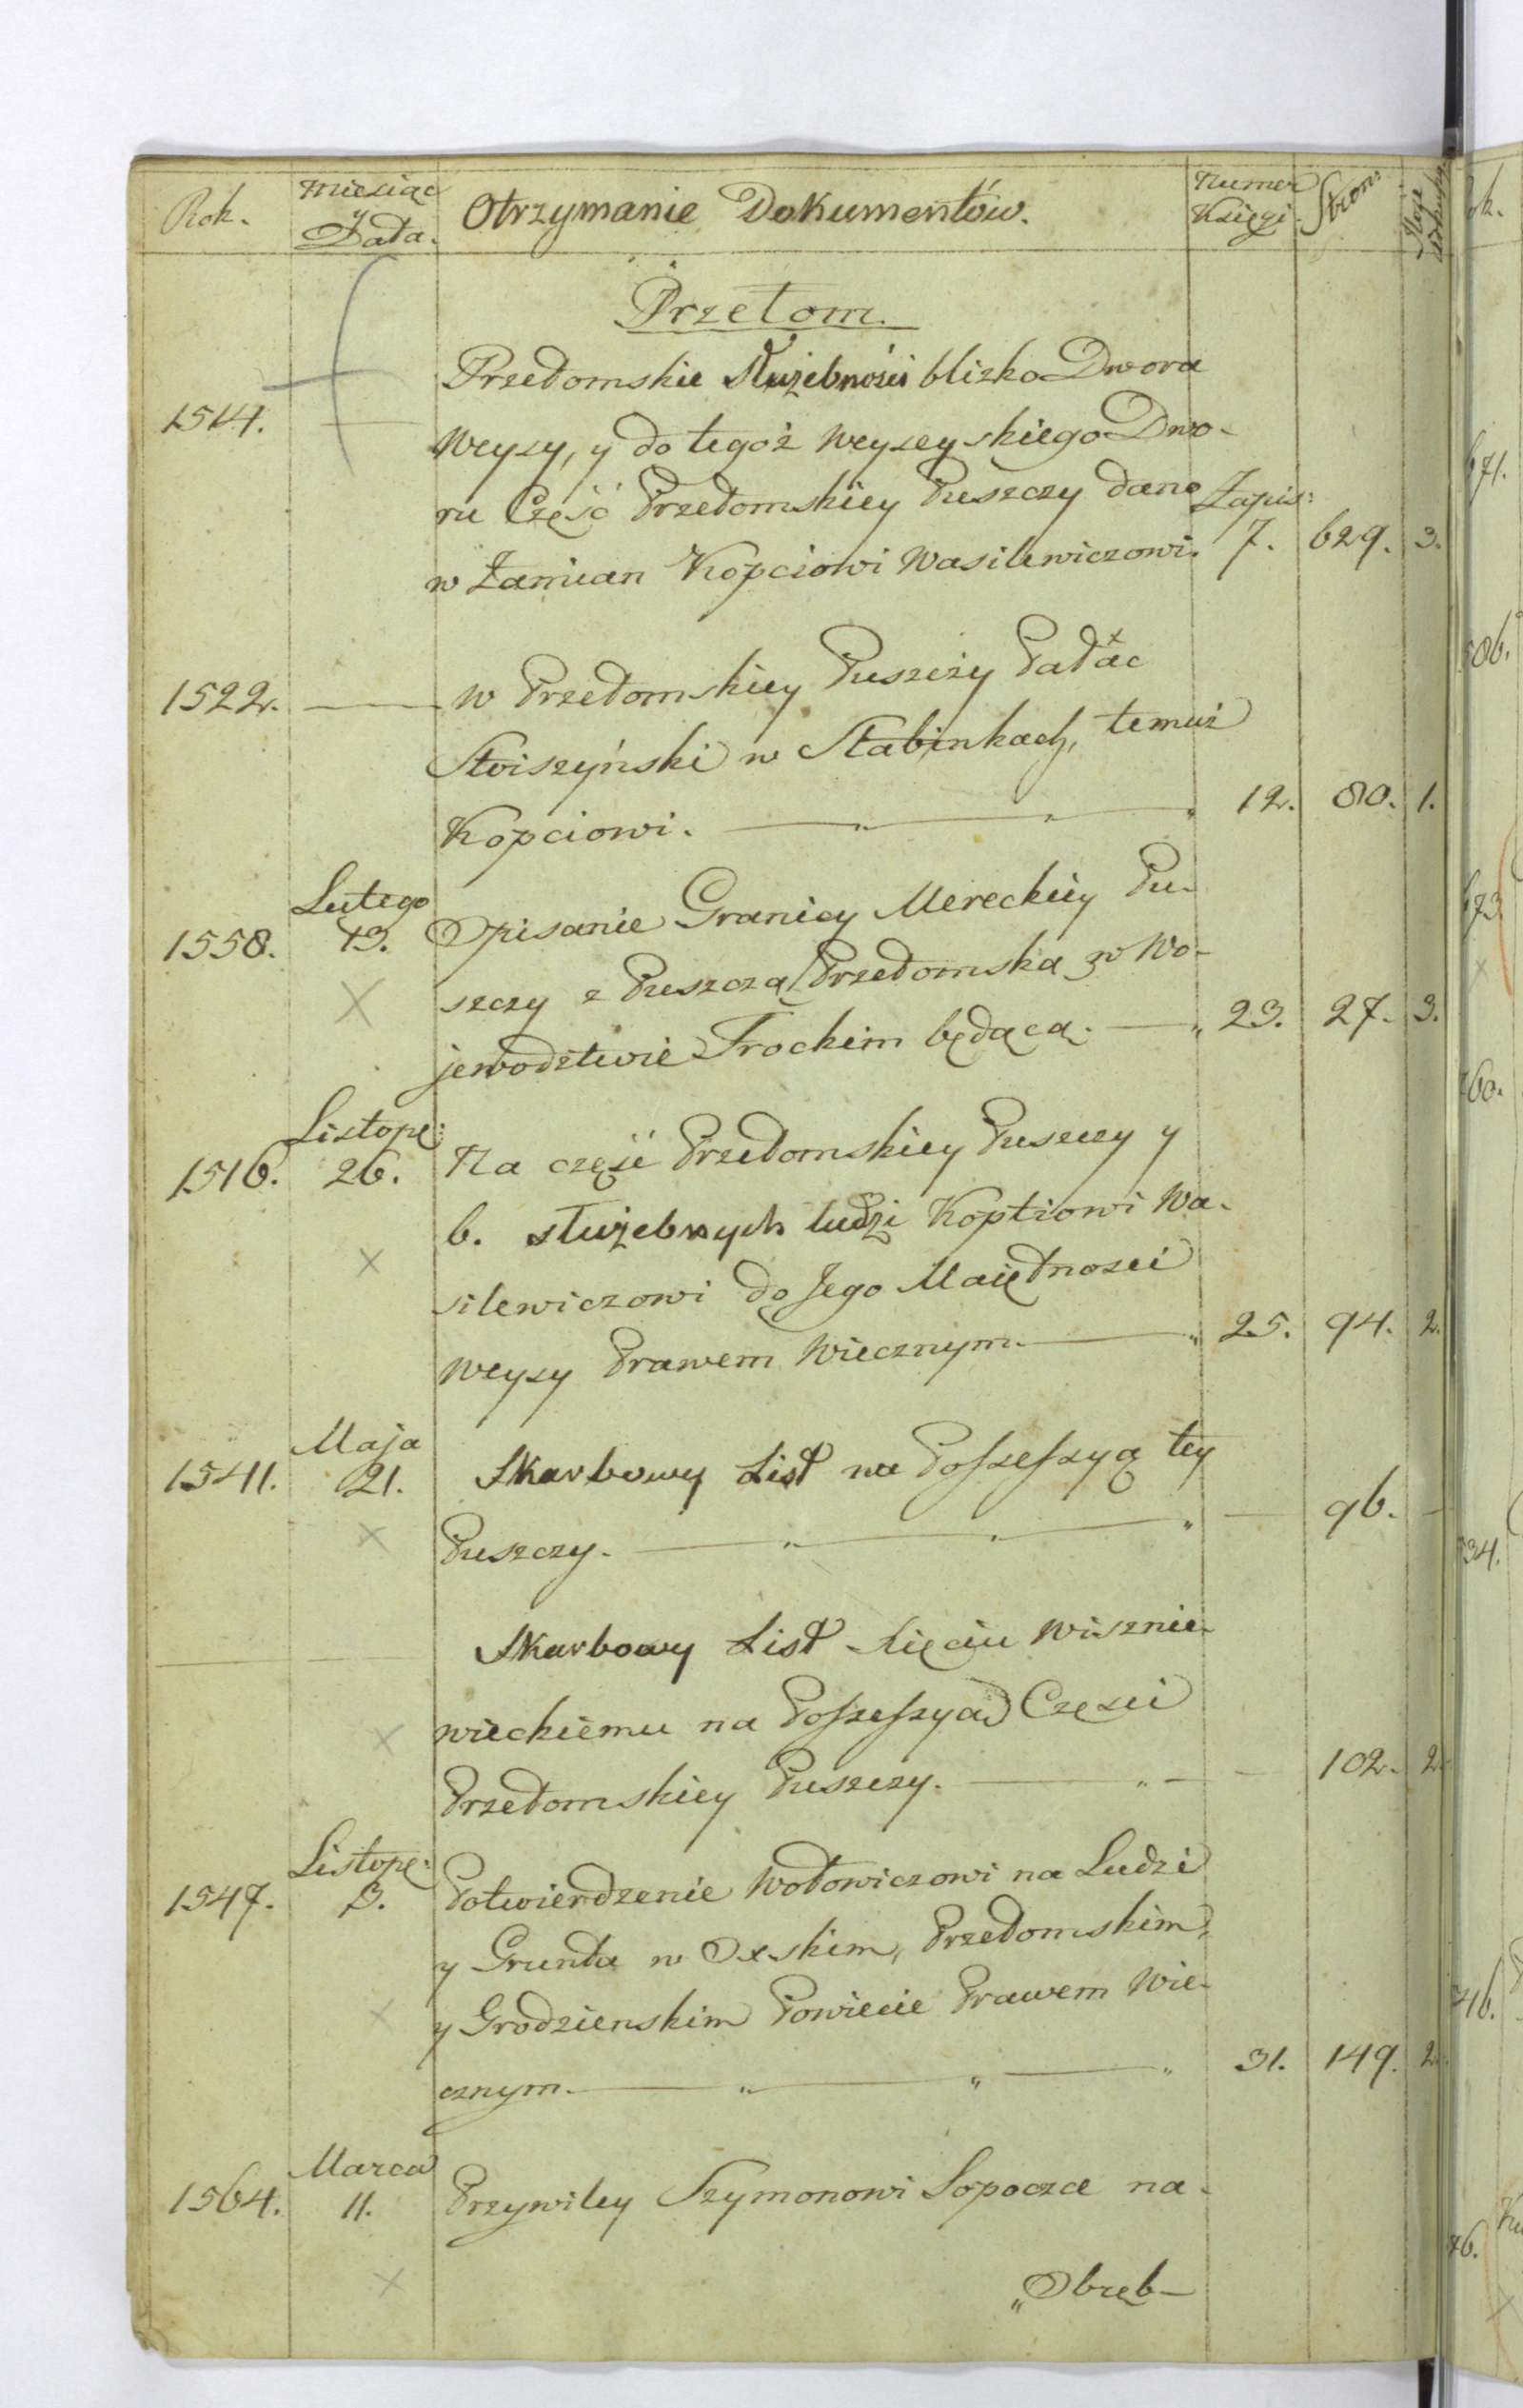 Rok. Miesiąc y Data. Otrzymanie Dokumentów. Numer Księgi. Stron:
Przełom.
Przełomskie Służebności blizko Dwora
1514. Weysy, y do tegoż Weyseyskiego Dwo-
ru Część Przełomskiey Puszczy dano Zapis:
w Zamian Kopciowi Wasilewiczowi. 7. 629. 3.
1522. w Przełomskiey Puszczy Pałać
Stoiszyński w Stabinkach, temuż
Kopciowi. 12. 80. 1.
Lutego
1558. 13. Opisanie Granicy Mereckiey Pu-
szczy z Puszczą Przełomską w Wo-
jewodztwie Trockim będącą. 23. 27. 3.
Listopa:
1516. 26. Na część Przełomskiey Puszczy y
6. służebnych ludzi Koptiowi Wa-
silewiczowi do Jego Maiętnosci
Weysy Prawem Wiecznym. 25. 94. 2.
Maja
1541. 21. Skarbowy List na Possessyą tey
Puszczy. 96.
Skarbowy List Xięciu Wisznie-
wieckiemu na Possessyą Częsci
Przełomskiey Puszczy. 102. 2.
Listopa:
1547. 3. Potwierdzenie Wołowiczowi na Ludzi
y Grunta w Oxskim, Przełomskim,
y Grodzienskim Powiecie Prawem Wie-
cznym. 31. 149. 2.
Marca
1564. 11. Przywiley Szymonowi Sopoćce na-
„Obręb-